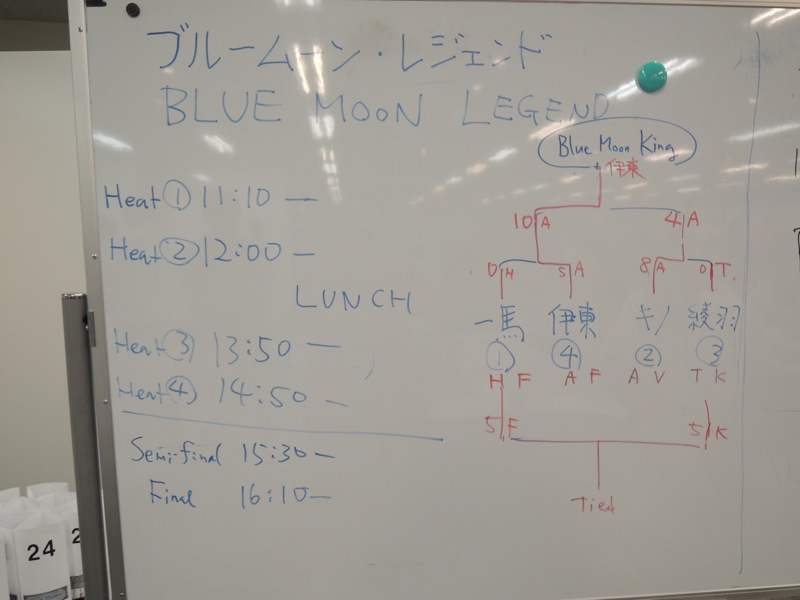 ブルームーン・レジェンド
BLUE MOON LEGEND
Blue Moon King
伊東
Heat ① 11:10 —
Heat ② 12:00 —
LUNCH
Heat ③ 13:50 —
Heat ④ 14:50 —
Semi-final 15:30 —
Final 16:10 —
10 A 4 A
0 H 5 A 8 A 0 T.
一馬 伊東 キノ 綾羽
① ④ ② ③
H F A F A V T K
5 F 5 K
Tied
24
2